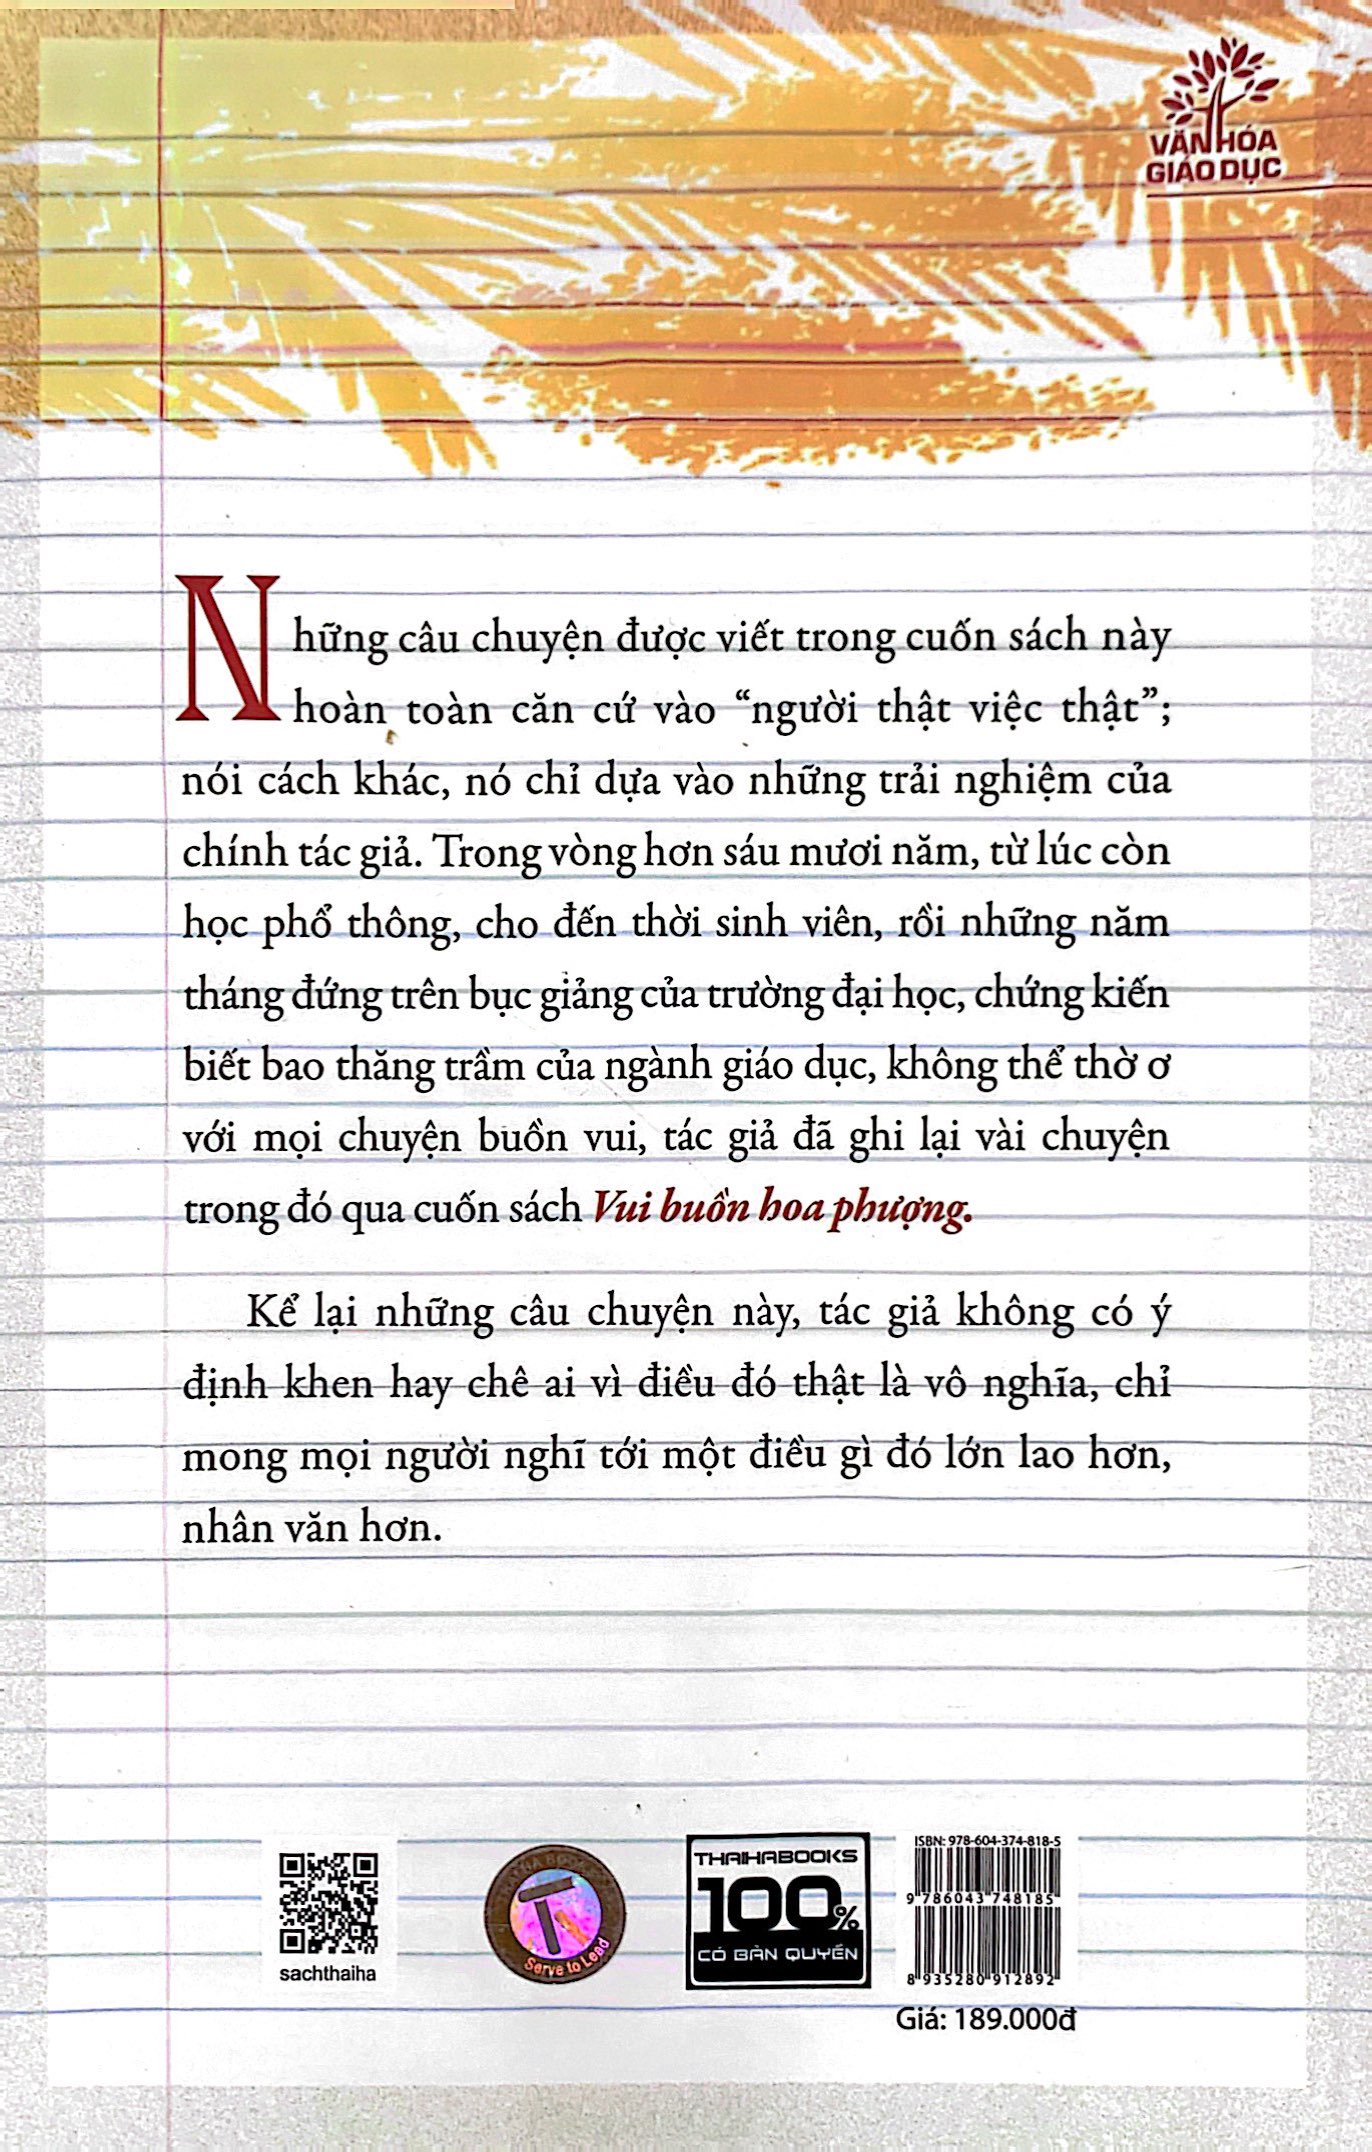 VĂN HÓA
GIÁO DỤC
Những câu chuyện được viết trong cuốn sách này
hoàn toàn căn cứ vào “người thật việc thật”;
nói cách khác, nó chỉ dựa vào những trải nghiệm của
chính tác giả. Trong vòng hơn sáu mươi năm, từ lúc còn
học phổ thông, cho đến thời sinh viên, rồi những năm
tháng đứng trên bục giảng của trường đại học, chứng kiến
biết bao thăng trầm của ngành giáo dục, không thể thờ ơ
với mọi chuyện buồn vui, tác giả đã ghi lại vài chuyện
trong đó qua cuốn sách Vui buồn hoa phượng.
Kể lại những câu chuyện này, tác giả không có ý
định khen hay chê ai vì điều đó thật là vô nghĩa, chỉ
mong mọi người nghĩ tới một điều gì đó lớn lao hơn,
nhân văn hơn.
sachthaiha
Serve to Lead
THAIHABOOKS
100%
CÓ BẢN QUYỀN
ISBN: 978-604-374-818-5
9 786043 748185
8 935280 912892
Giá: 189.000đ